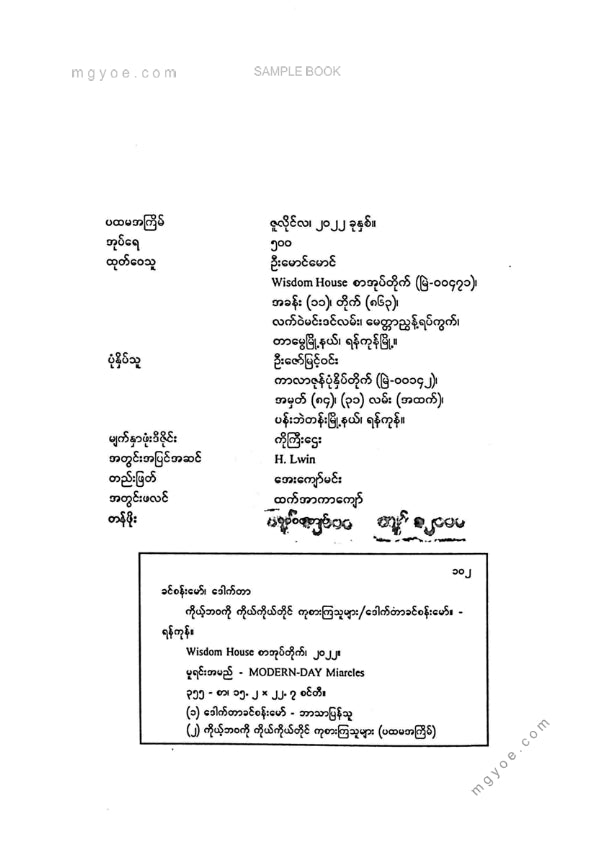 mgyoe.com SAMPLE BOOK
ပထမအကြိမ် ဇူလိုင်လ၊ ၂၀၂၂ ခုနှစ်။
အုပ်ရေ ၅၀၀
ထုတ်ဝေသူ ဦးမောင်မောင်
Wisdom House စာအုပ်တိုက် (မြဲ-၀၀၄၇၁)၊
အခန်း (၁၁)၊ တိုက် (၈၆၃)၊
လက်ဝဲမင်းဒင်လမ်း၊ မေတ္တာညွန့်ရပ်ကွက်၊
တာမွေမြို့နယ်၊ ရန်ကုန်မြို့။
ပုံနှိပ်သူ ဦးဇော်မြင့်ဝင်း
ကာလာဇုန်ပုံနှိပ်တိုက် (မြဲ-၀၀၁၄၂)၊
အမှတ် (၈၄)၊ (၃၁) လမ်း (အထက်)၊
ပန်းဘဲတန်းမြို့နယ်၊ ရန်ကုန်။
မျက်နှာဖုံးဒီဇိုင်း ကိုကြီးဌေး
အတွင်းအပြင်အဆင် H. Lwin
တည်းဖြတ် အေးကျော်မင်း
အတွင်းဖလင် ထက်အာကာကျော်
တန်ဖိုး
၁၀၂
ခင်စန်းမော်၊ ဒေါက်တာ
ကိုယ့်ဘဝကို ကိုယ်ကိုယ်တိုင် ကုစားကြသူများ/ဒေါက်တာခင်စန်းမော်။ -
ရန်ကုန်။
Wisdom House စာအုပ်တိုက်၊ ၂၀၂၂။
မူရင်းအမည် - MODERN-DAY Miarcles
၃၅၅ - စာ၊ ၁၅. ၂ × ၂၂. ၇ စင်တီ။
(၁) ဒေါက်တာခင်စန်းမော် - ဘာသာပြန်သူ
(၂) ကိုယ့်ဘဝကို ကိုယ်ကိုယ်တိုင် ကုစားကြသူများ (ပထမအကြိမ်)
mgyoe.com